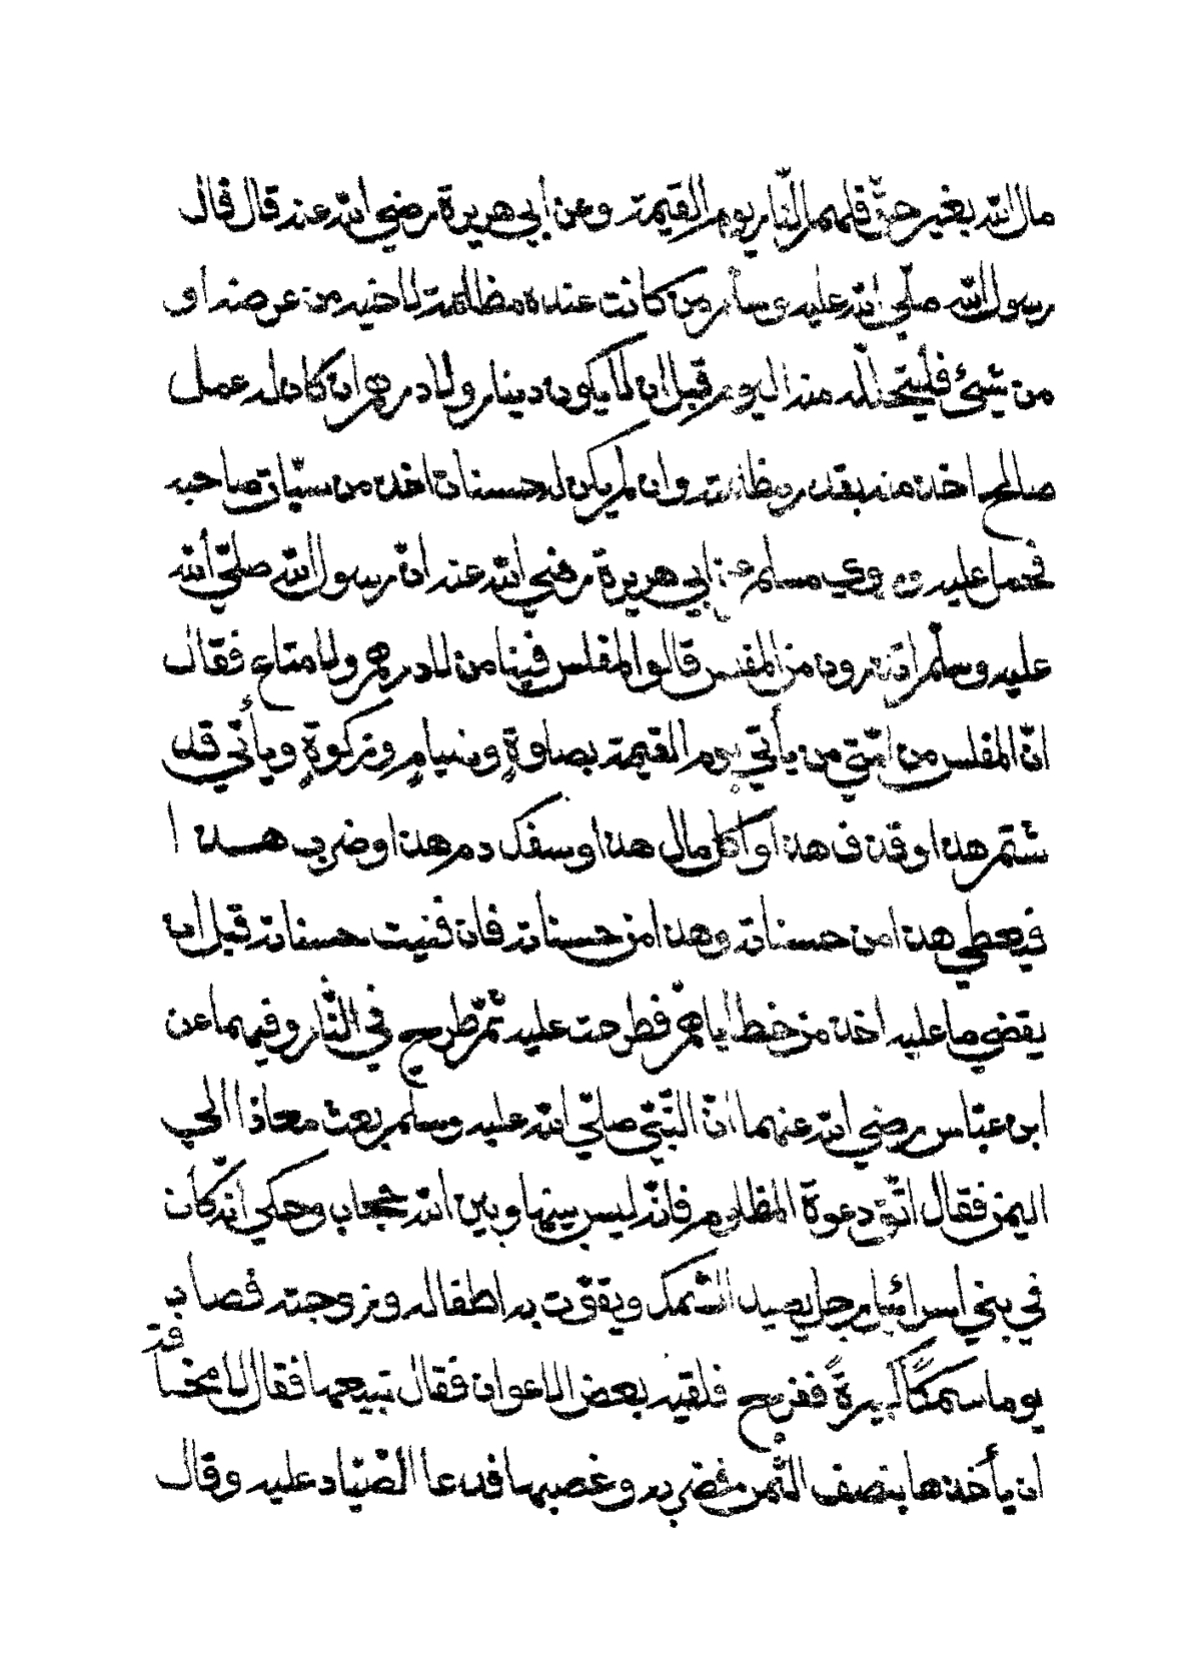 مال الله بغير حقّ فلهم النّار يوم القيمة وعن أبي هريرة رضي الله عنه قال قال
رسول الله صلّي الله عليه وسلم من كانت عنده مظالمة لاخيه من عرضه او
من شيئ فليتحلّله منه اليوم قبل ان لا يكون دينار ولا درهم ان كان له عمل
صالح اخذ منه بقدر مظلمته وان لم يكن له حسنات اخذ من سيّات صاحبه
فحمل عليه وروي مسلم عن أبي هريرة رضي الله عنه انّ رسول الله صلّي الله
عليه وسلّم اتدرون من المفلس قالوا المفلس فينا من لا درهم ولا متاع فقال
انّ المفلس من امّتي من يأتي يوم القيمة بصلوةٍ وصيامٍ وزكوةٍ ويأتي قد
شتم هذا وقذف هذا واكل مال هذا وسفك دم هذا وضرب هذا
فيعطي هذا من حسناته وهذا من حسناته فان فنيت حسناته قبل ان
يقضي ما عليه اخذ من خطاياهم فطرحت عليه ثمّ طرح في النّار وفيهما عن
ابن عبّاس رضي الله عنهما انّ النّبيّ صلّي الله عليه وسلم بعث معاذا الي
اليمن فقال اتّق دعوة المظلوم فانّه ليس بينها وبين الله حجاب وحكي انّه كان
في بني اسرائيل رجل يصيد السّمك ويقوّت به اطفاله وزوجته فصاد
يوما سمكةً كبيرةً ففرح فلقيه بعض الاعوان فقال تبيعها فقال لا فخاف
ان يأخذها بنصف الثّمن فضربه وغصبها فدعا الصّيّاد عليه وقال